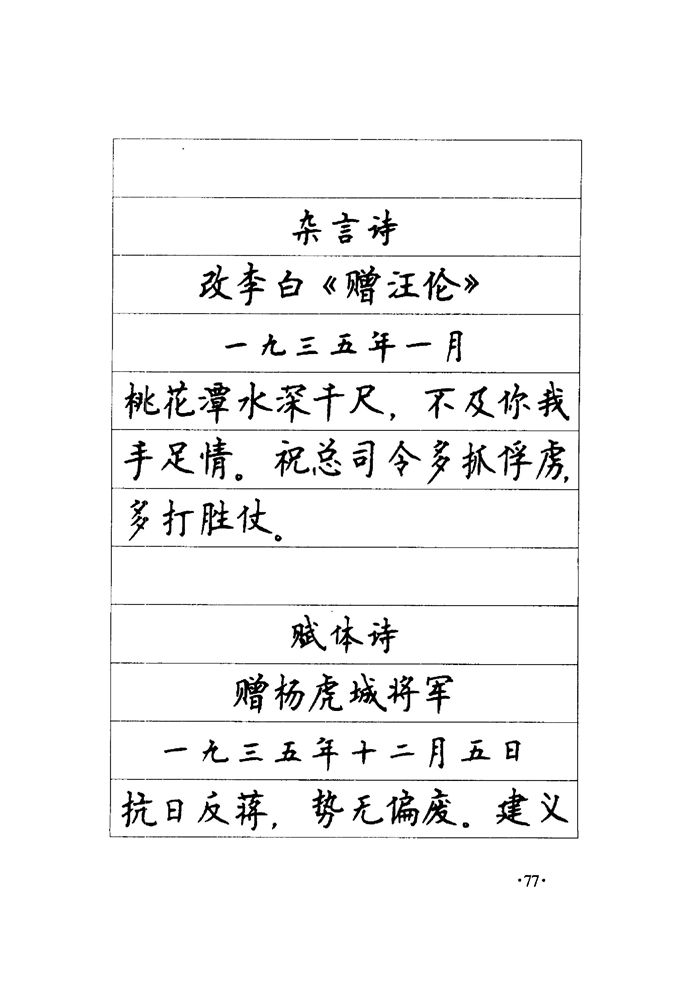 杂言诗
改李白《赠汪伦》
一九三五年一月
桃花潭水深千尺，不及你我
手足情。祝总司令多抓俘虏，
多打胜仗。
赋体诗
赠杨虎城将军
一九三五年十二月五日
抗日反蒋，势无偏废。建义
·77·